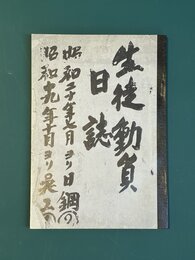 生徒動員
日誌
昭和二十年 月ヨリ日鋼
昭和十九年十月ヨリ呉工